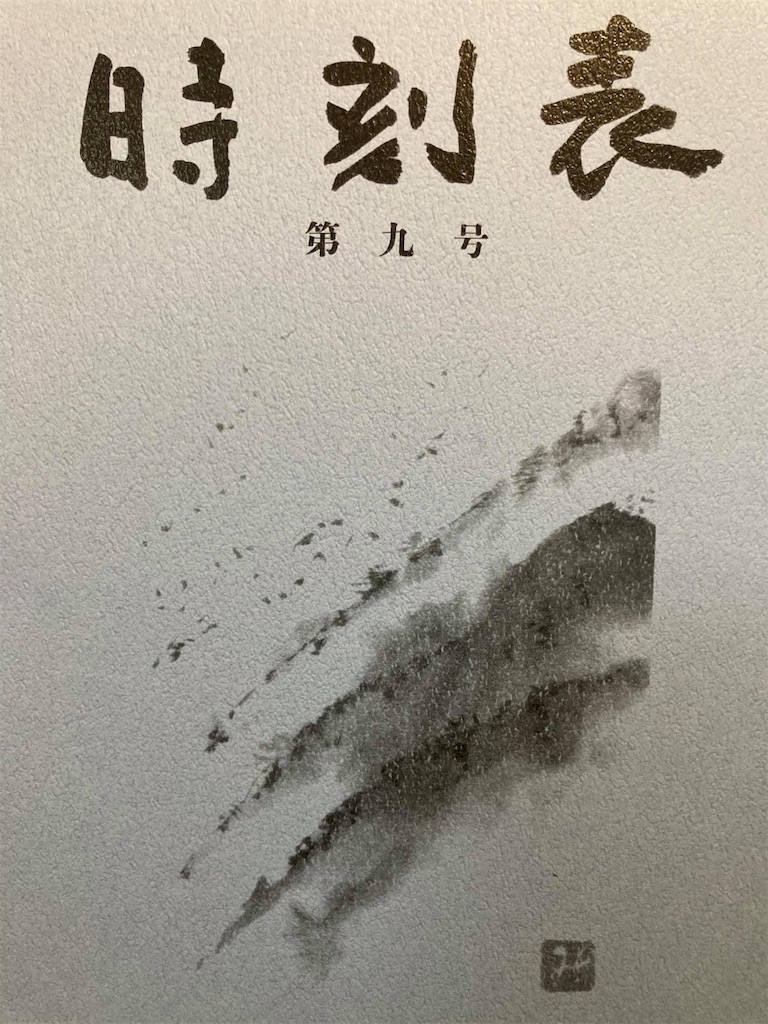 時刻表
第九号